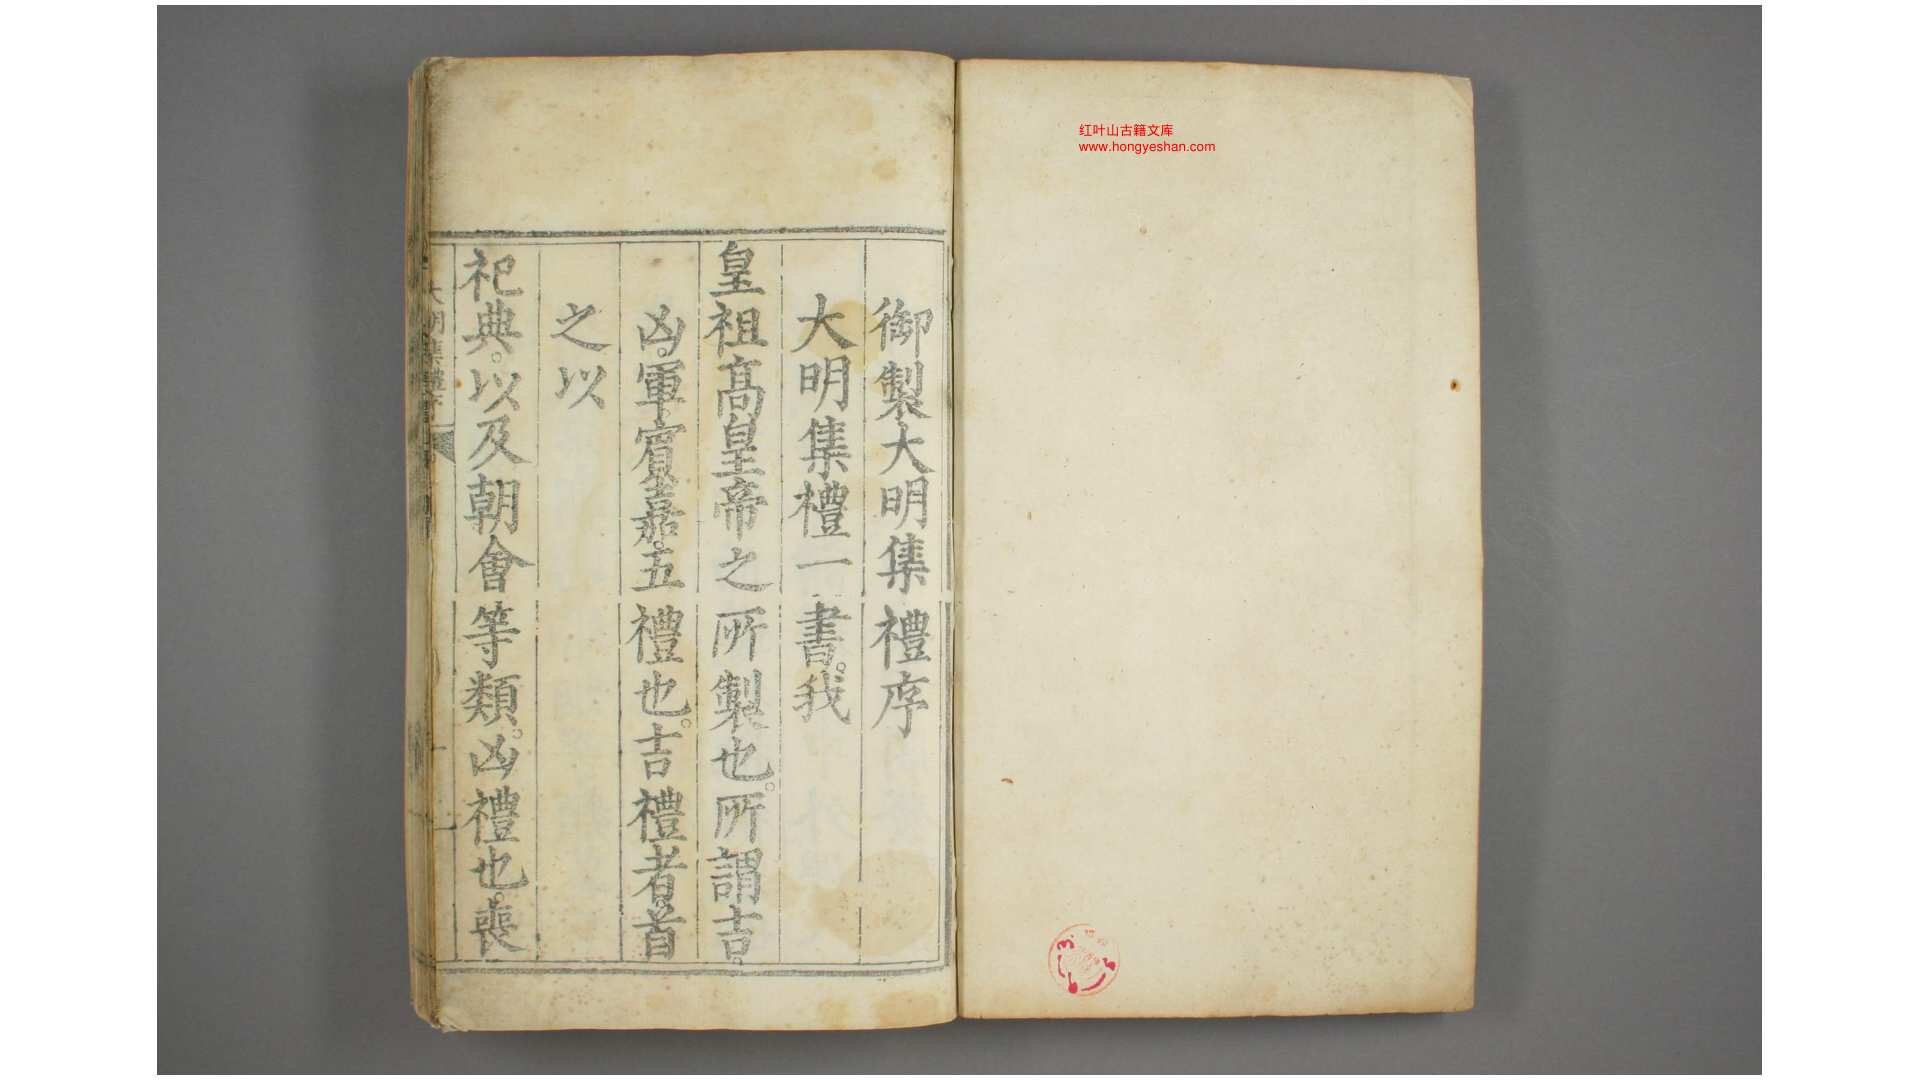 御製大明集禮序
大明集禮一書。我
皇祖高皇帝之所製也。所謂吉。
凶。軍。賓。嘉。五禮也。吉禮者。首
之以
祀典。以及朝會等類。凶禮也。喪
大明集禮序
红叶山古籍文库
www.hongyeshan.com